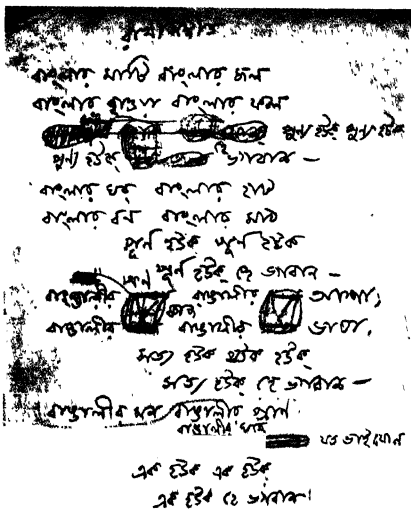 বাংলার মাটি বাংলার জল
বাংলার হাওয়া বাংলার ফল
পুণ্য হউক পুণ্য হউক
পুণ্য হউক হে ভগবান —
বাংলার ঘর বাংলার হাট
বাংলার বন বাংলার মাঠ
পূর্ণ হউক পূর্ণ হউক
পূর্ণ হউক হে ভগবান —
বাঙালীর পণ বাঙালীর আশা,
বাঙালীর কাজ বাঙালীর ভাষা,
সত্য হউক সত্য হউক
সত্য হউক হে ভগবান —
বাঙালীর মন বাঙালীর প্রাণ
বাঙালীর ঘরে
যত ভাইবোন
এক হউক এক হউক
এক হউক হে ভগবান।